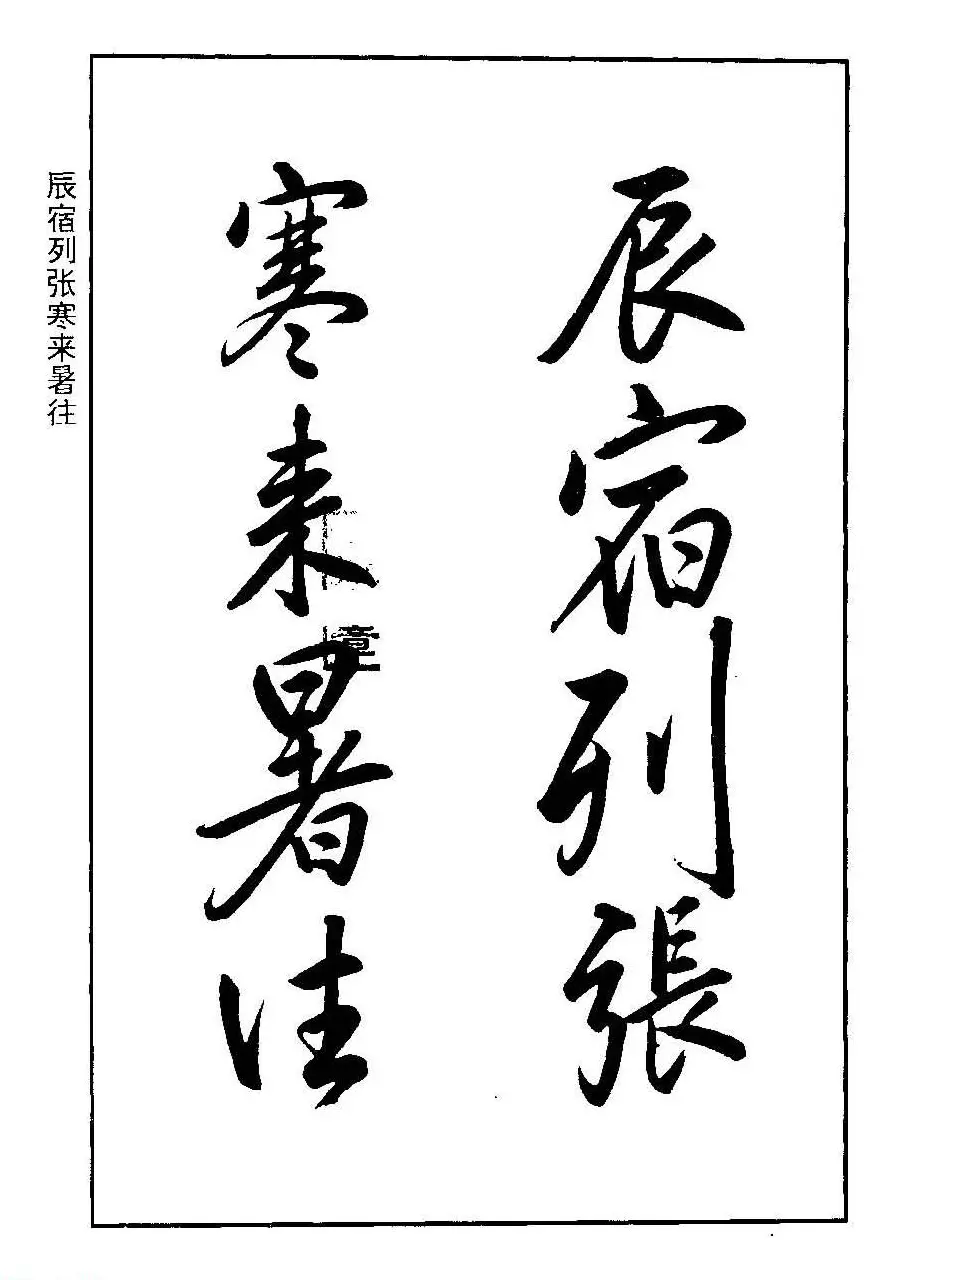 辰宿列張
寒来暑往
辰宿列张寒来暑往